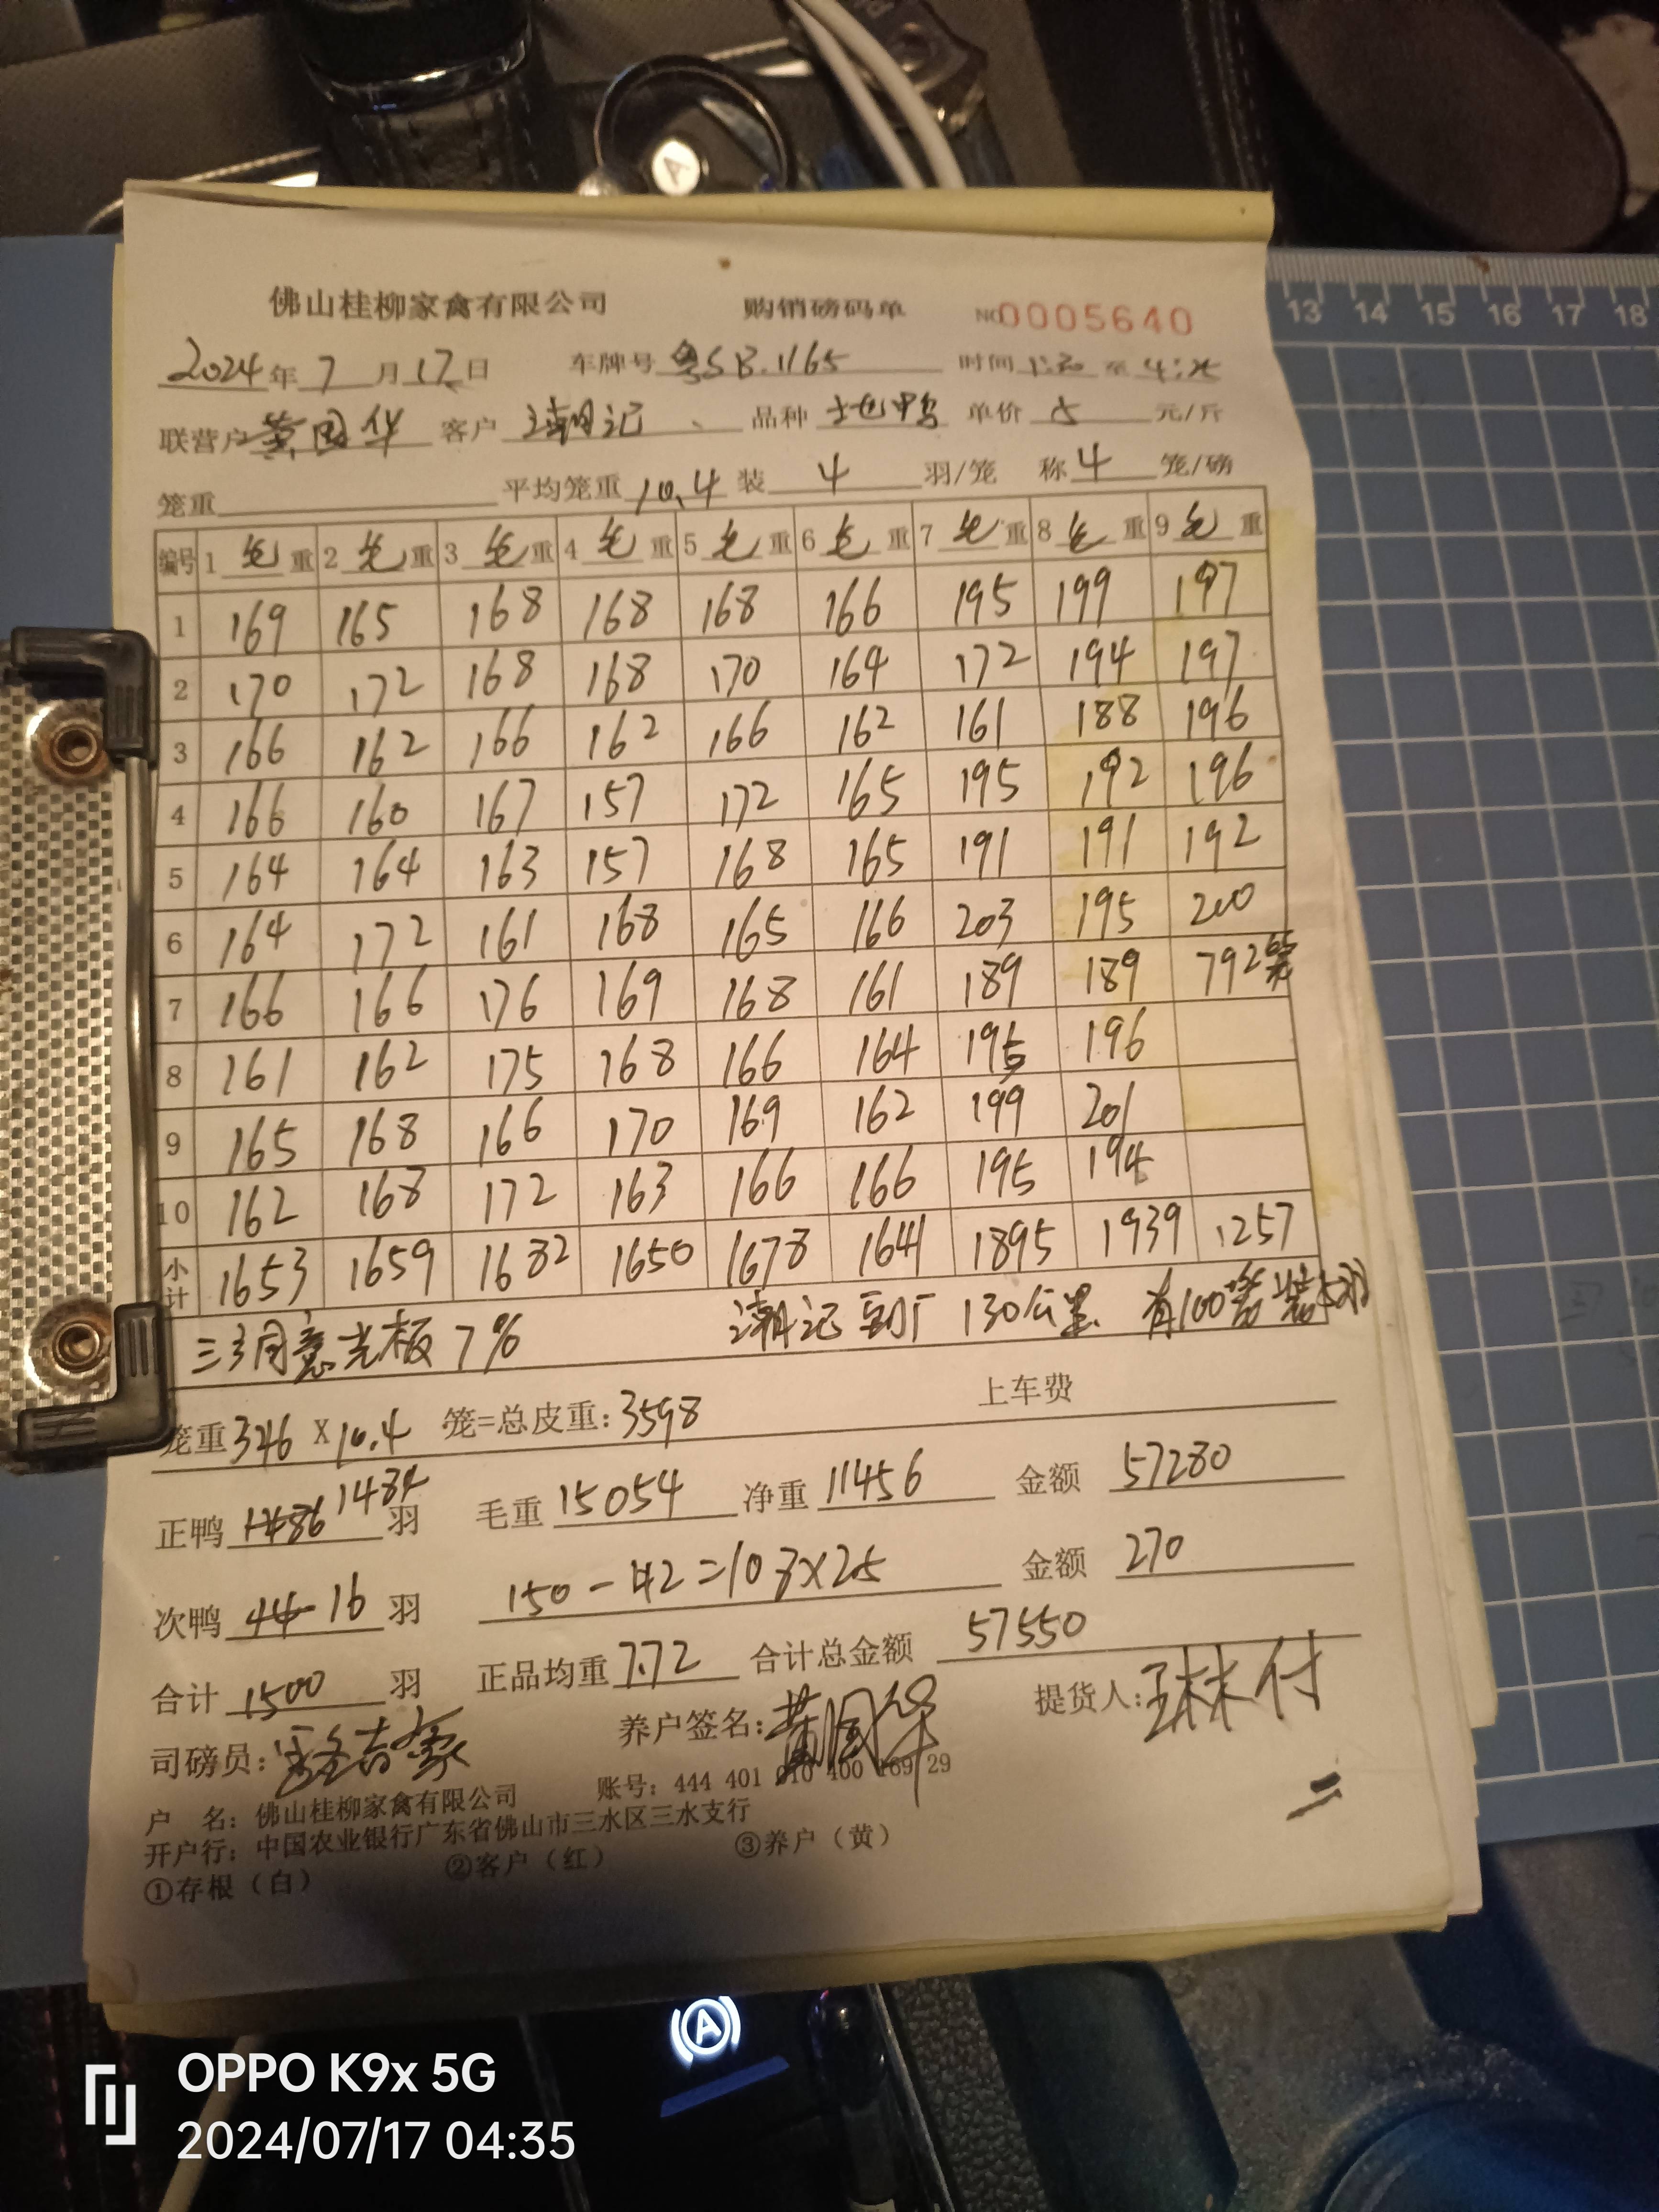 13 14 15 16 17 18
佛山桂柳家禽有限公司 购销磅码单 NO0005640
2024年7月17日 车牌号 粤SB.1165 时间 1:30 至 4:25
联营户 黄国华 客户 潮记 品种 土也鸭 单价 5 元/斤
笼重 平均笼重 10.4 装 4 羽/笼 称 4 笼/磅
编号 1 毛重 2 毛重 3 毛重 4 毛重 5 毛重 6 毛重 7 毛重 8 毛重 9 毛重
1 169 165 168 168 168 166 195 199 197
2 170 172 168 168 170 164 172 194 197
3 166 162 166 162 166 162 161 188 196
4 166 160 167 157 172 165 195 192 196
5 164 164 163 157 168 165 191 191 192
6 164 172 161 168 165 166 203 195 200
7 166 166 176 169 168 161 189 189 79 2笼
8 161 162 175 168 166 164 195 196
9 165 168 166 170 169 162 199 201
10 162 168 172 163 166 166 195 194
小计 1653 1659 1682 1650 1678 1641 1895 1939 1257
同意光板 7% 潮记到厂 130公里 有100笼装5羽
笼重 346 X 10.4 笼=总皮重: 3598 上车费
正鸭 1486 1484 羽 毛重 15054 净重 11456 金额 57280
次鸭 44 16 羽 150-42=108×2.5 金额 270
合计 1500 羽 正品均重 7.72 合计总金额 57550
司磅员: 养户签名: 黄国华 提货人: 林付
户 名: 佛山桂柳家禽有限公司 账号: 444 401 010 400 169 29
开户行: 中国农业银行广东省佛山市三水区三水支行
①存根（白） ②客户（红） ③养户（黄）
OPPO K9x 5G
2024/07/17 04:35